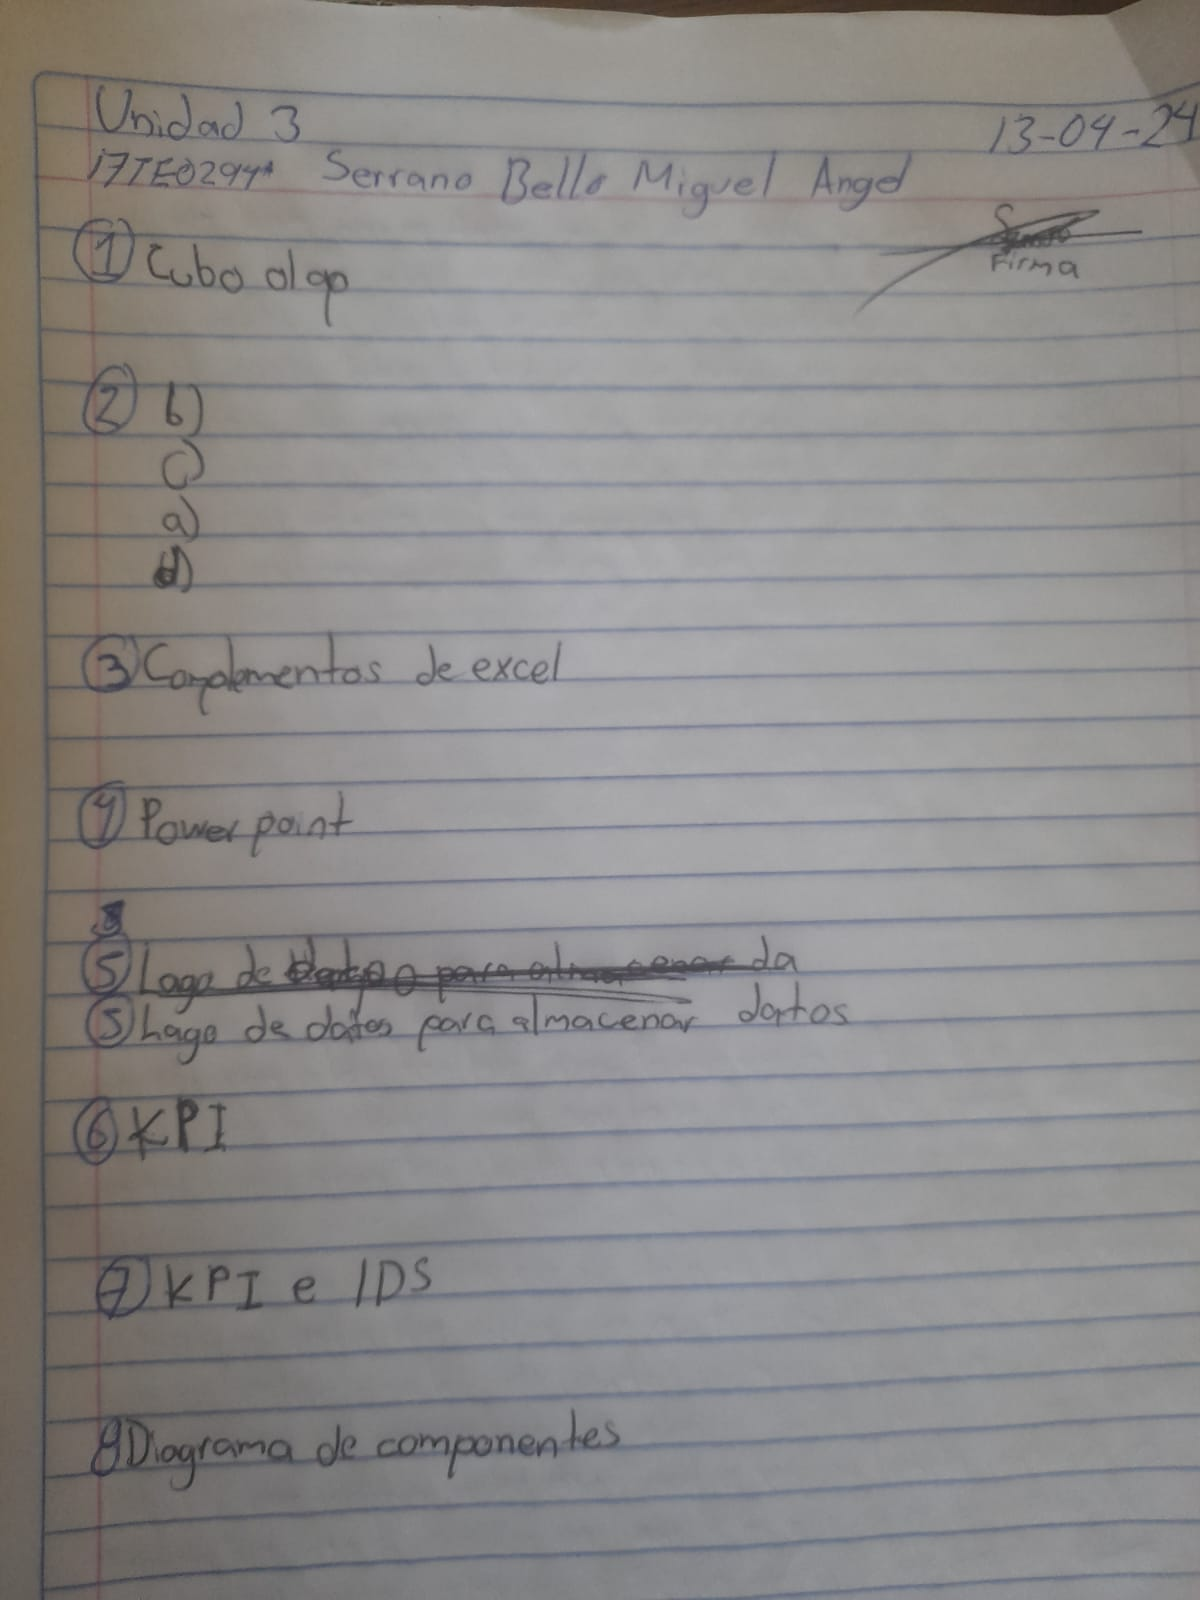 Unidad 3 13-04-24
17TE0294* Serrano Bello Miguel Angel
Firma
1 Cubo olap
2 b)
c)
a)
d)
3 Complementos de excel
4 Power point
5 Lago de para almacenar da
5 Lago de datos para almacenar datos
6 KPI
7 KPI e IDS
8 Diagrama de componentes